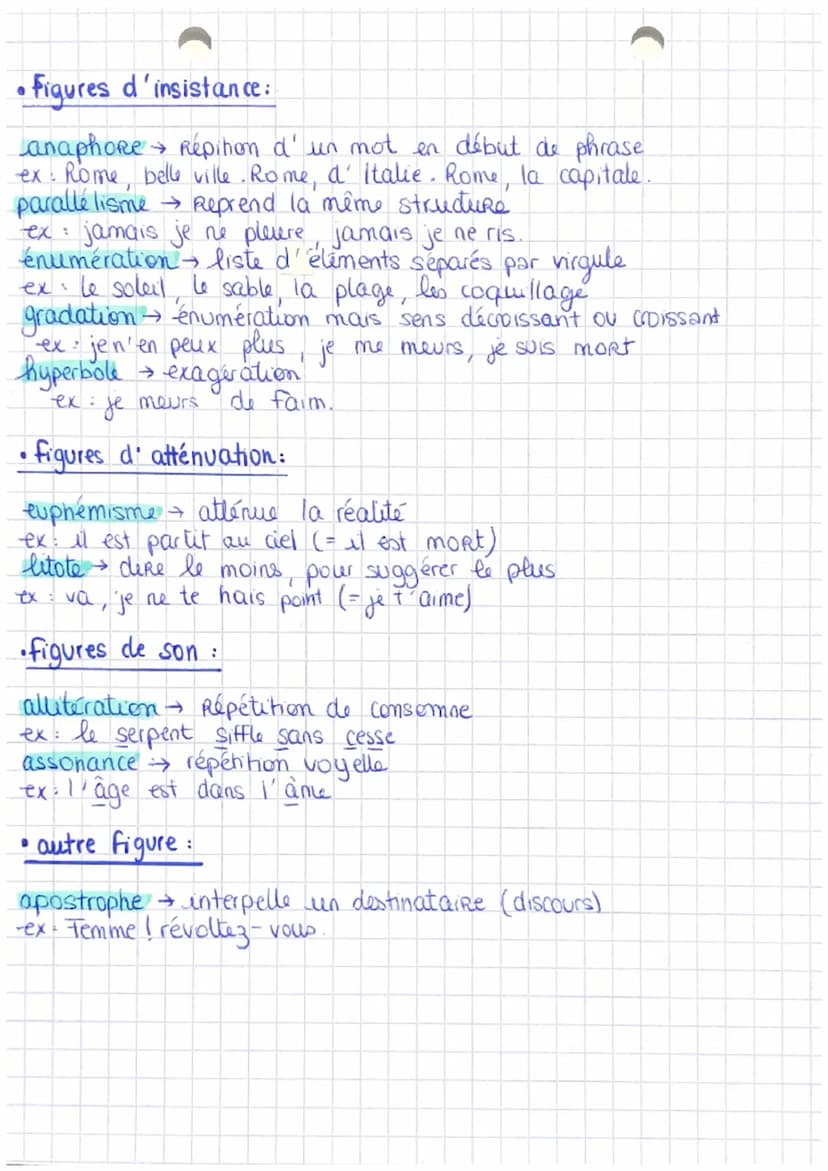 • figures d'insistance:
anaphore → Répition d'un mot en début de phrase
ex : Rome, belle ville. Rome, d'Italie. Rome, la capitale.
parallélisme → Reprend la même structure
ex : jamais je ne pleure, jamais je ne ris.
énumération → liste d'éléments séparés par virgule
ex : le soleil, le sable, la plage, les coquillage
gradation → énumération mais sens décroissant ou croissant
ex : je n'en peux plus, je me meurs, je suis mort
hyperbole → exagération
ex : je meurs de faim.
• figures d'atténuation:
euphémisme → atténue la réalité
ex : il est partit au ciel (= il est mort)
litote → dire le moins, pour suggérer le plus
ex : va, je ne te hais point (= je t'aime)
• figures de son :
allitération → Répétition de consonne
ex : le serpent siffle sans cesse
assonance → répétition voyelle
ex : l'âge est dans l'âme
• autre figure :
apostrophe → interpelle un destinataire (discours)
ex : Femme ! révoltez-vous.